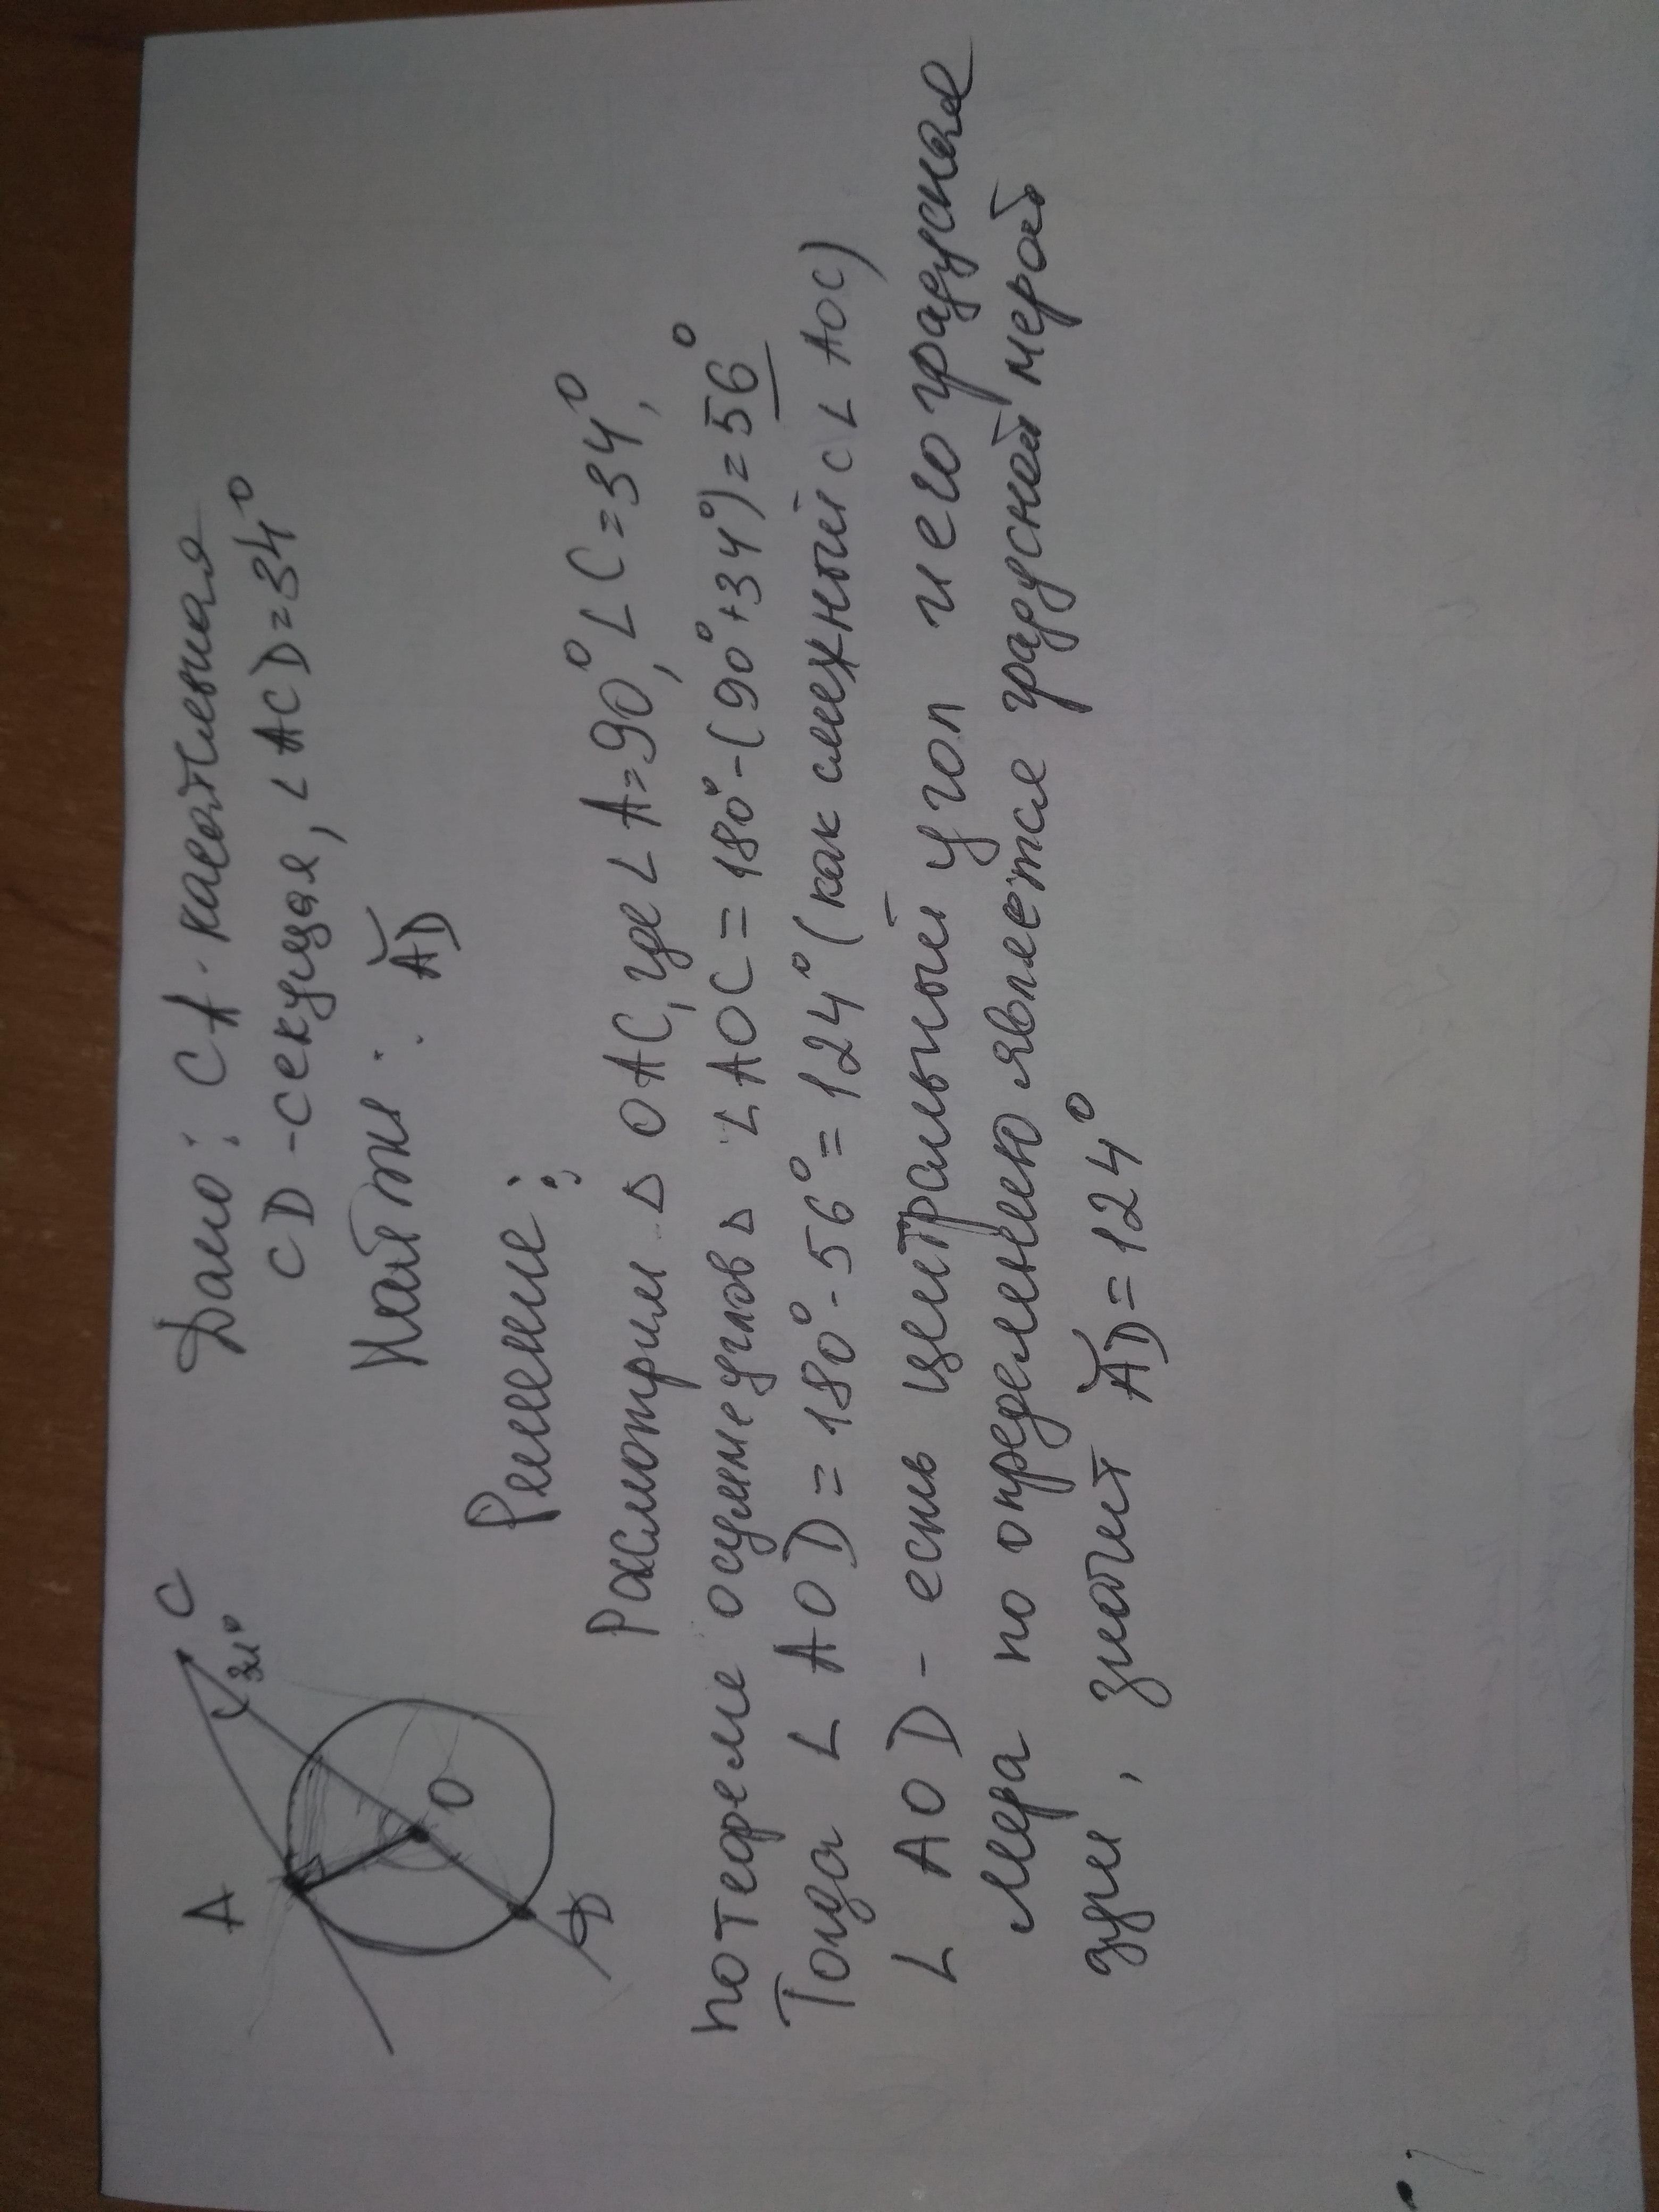 A
C
34°
O
D
Дано: CA - касательная
CD - секущая, ∠ACD=34°
Найти: A͝D
Решение:
Расмотрим △ OAC, где ∠A=90°, ∠C=34°,
по теореме о сумме углов △ ∠AOC = 180° - (90°+34°) = 56°
Тогда ∠AOD = 180° - 56° = 124° (как смежный с ∠AOC)
∠AOD - есть центральный угол и его градусная
мера по определению является градусной мерой
дуги, значит A͝D = 124°